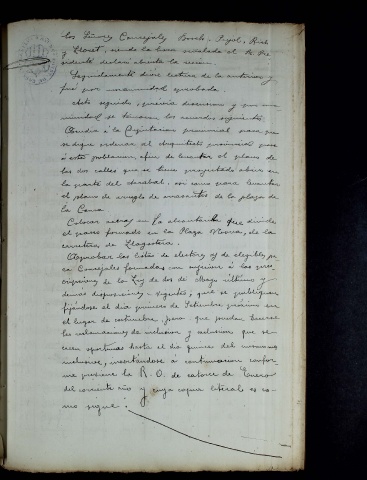 los Señores Concejales, Bosch, Pujol, Roch
y Lloret, siendo la hora señalada el Sr. Pre-
sidente declaró abierta la sesión.
Seguidamente diose lectura de la anterior y
fué por unanimidad aprobada.
Acto seguido, previa discusion y por una-
nimidad se tomaron los acuerdos siguientes.
Acudir á la Diputacion provincial para que
se digne ordenar al Arquitecto provincial pase
á esta poblacion, afin de levantar el plano de
las dos calles que se tiene proyectado abrir en
la parte del Arrabal, así como para levantar
el plano de arreglo de rasantes de la plaza de
la Cauca
Colocar en la alcantarilla que divide
el paseo formado en la Plaza Nueva, de la
carretera de Llagostera.
Aprobar las listas de electores y de elegibles pa-
ra Concejales formadas con sujecion á las
de la Ley de dos de último y
demas disposiciones vigentes; que se publiquen
fijándose el dia primero de Setiembre próximo en
el lugar de costumbre, para que puedan hacerse
las reclamaciones de inclusion y exclusion que se
crean oportunas hasta el dia quince del mismo mes
inclusive, insertándose á continuacion confor-
me previene la R. O. de catorce de Enero
del corriente año y cuya copia literal es co-
mo sigue: